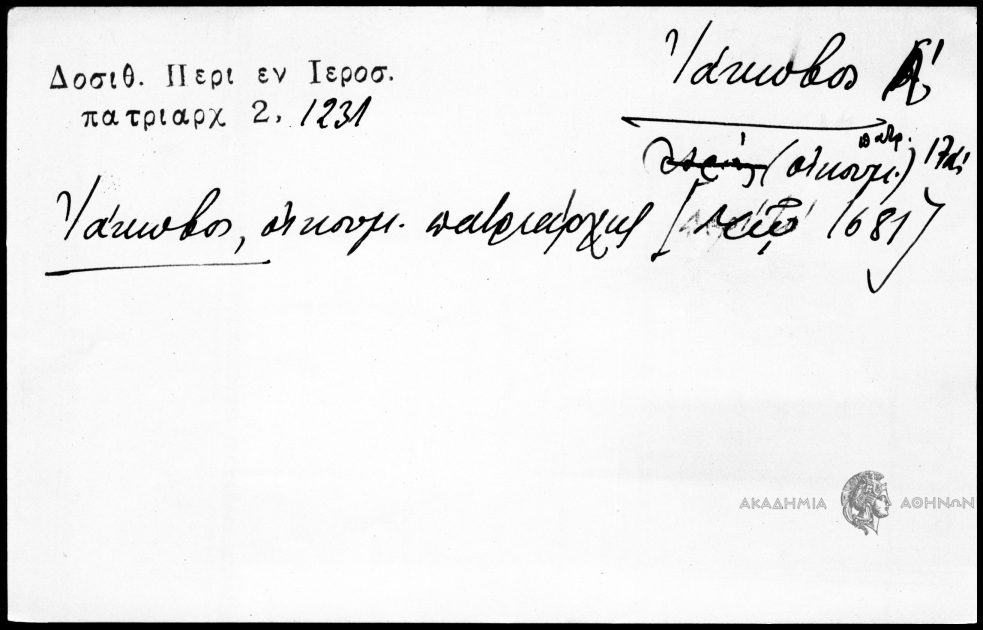 Δοσιθ. Περι εν Ιεροσ.
πατριαρχ 2, 1231
Ἰάκωβος Α'
(οἰκουμ. πατρ.) 17 αἰ
Ἰάκωβος, οἰκουμ. πατριάρχης [ 1681]
ΑΚΑΔΗΜΙΑ ΑΘΗΝΩΝ